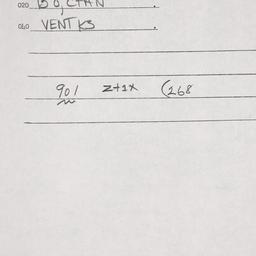 020 BO, CTAN .
060 VENT KS .
901 Z+1X (268